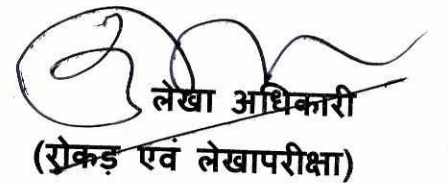 लेखा अधिकारी
(रोकड़ एवं लेखापरीक्षा)